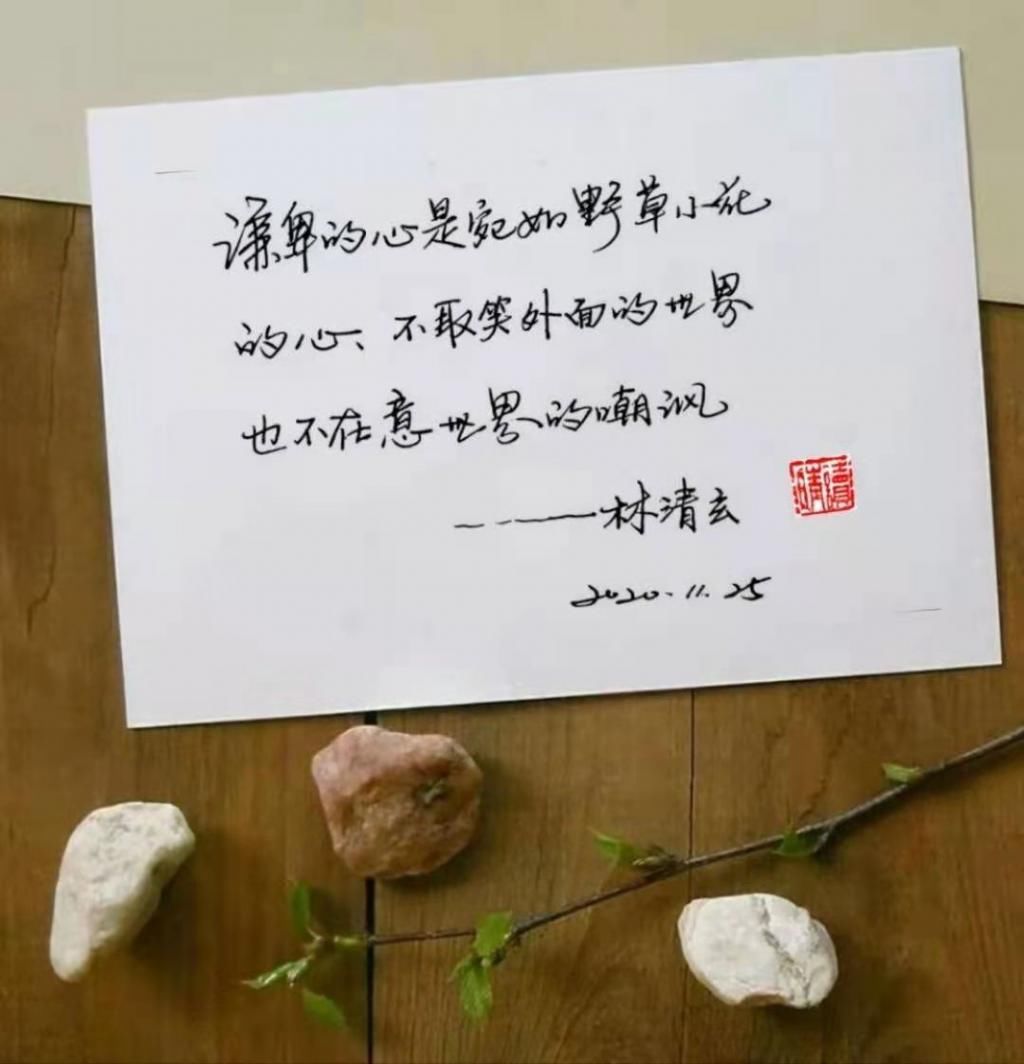 谦卑的心是宛如野草小花
的心、不取笑外面的世界
也不在意世界的嘲讽
------林清玄
2020.11.25